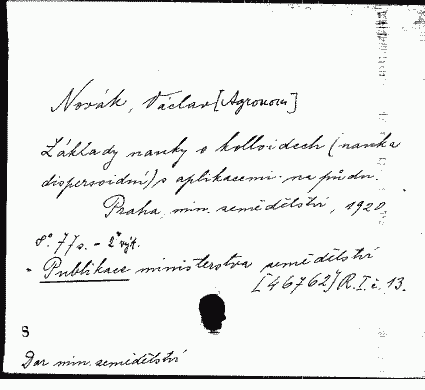 Novák, Václav [Agronom]
Základy nauky o kolloidech (nauka
dispersoidní) s aplikacemi na půdu.
Praha, min. zemědělství, 1920
8° 77 s. - 2 výt.
- Publikace ministerstva zemědělství
[46762] R. I. č. 13.
S
Dar min. zemědělství